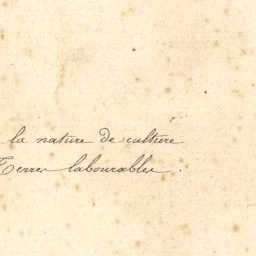 la nature de culture
Terres labourables.